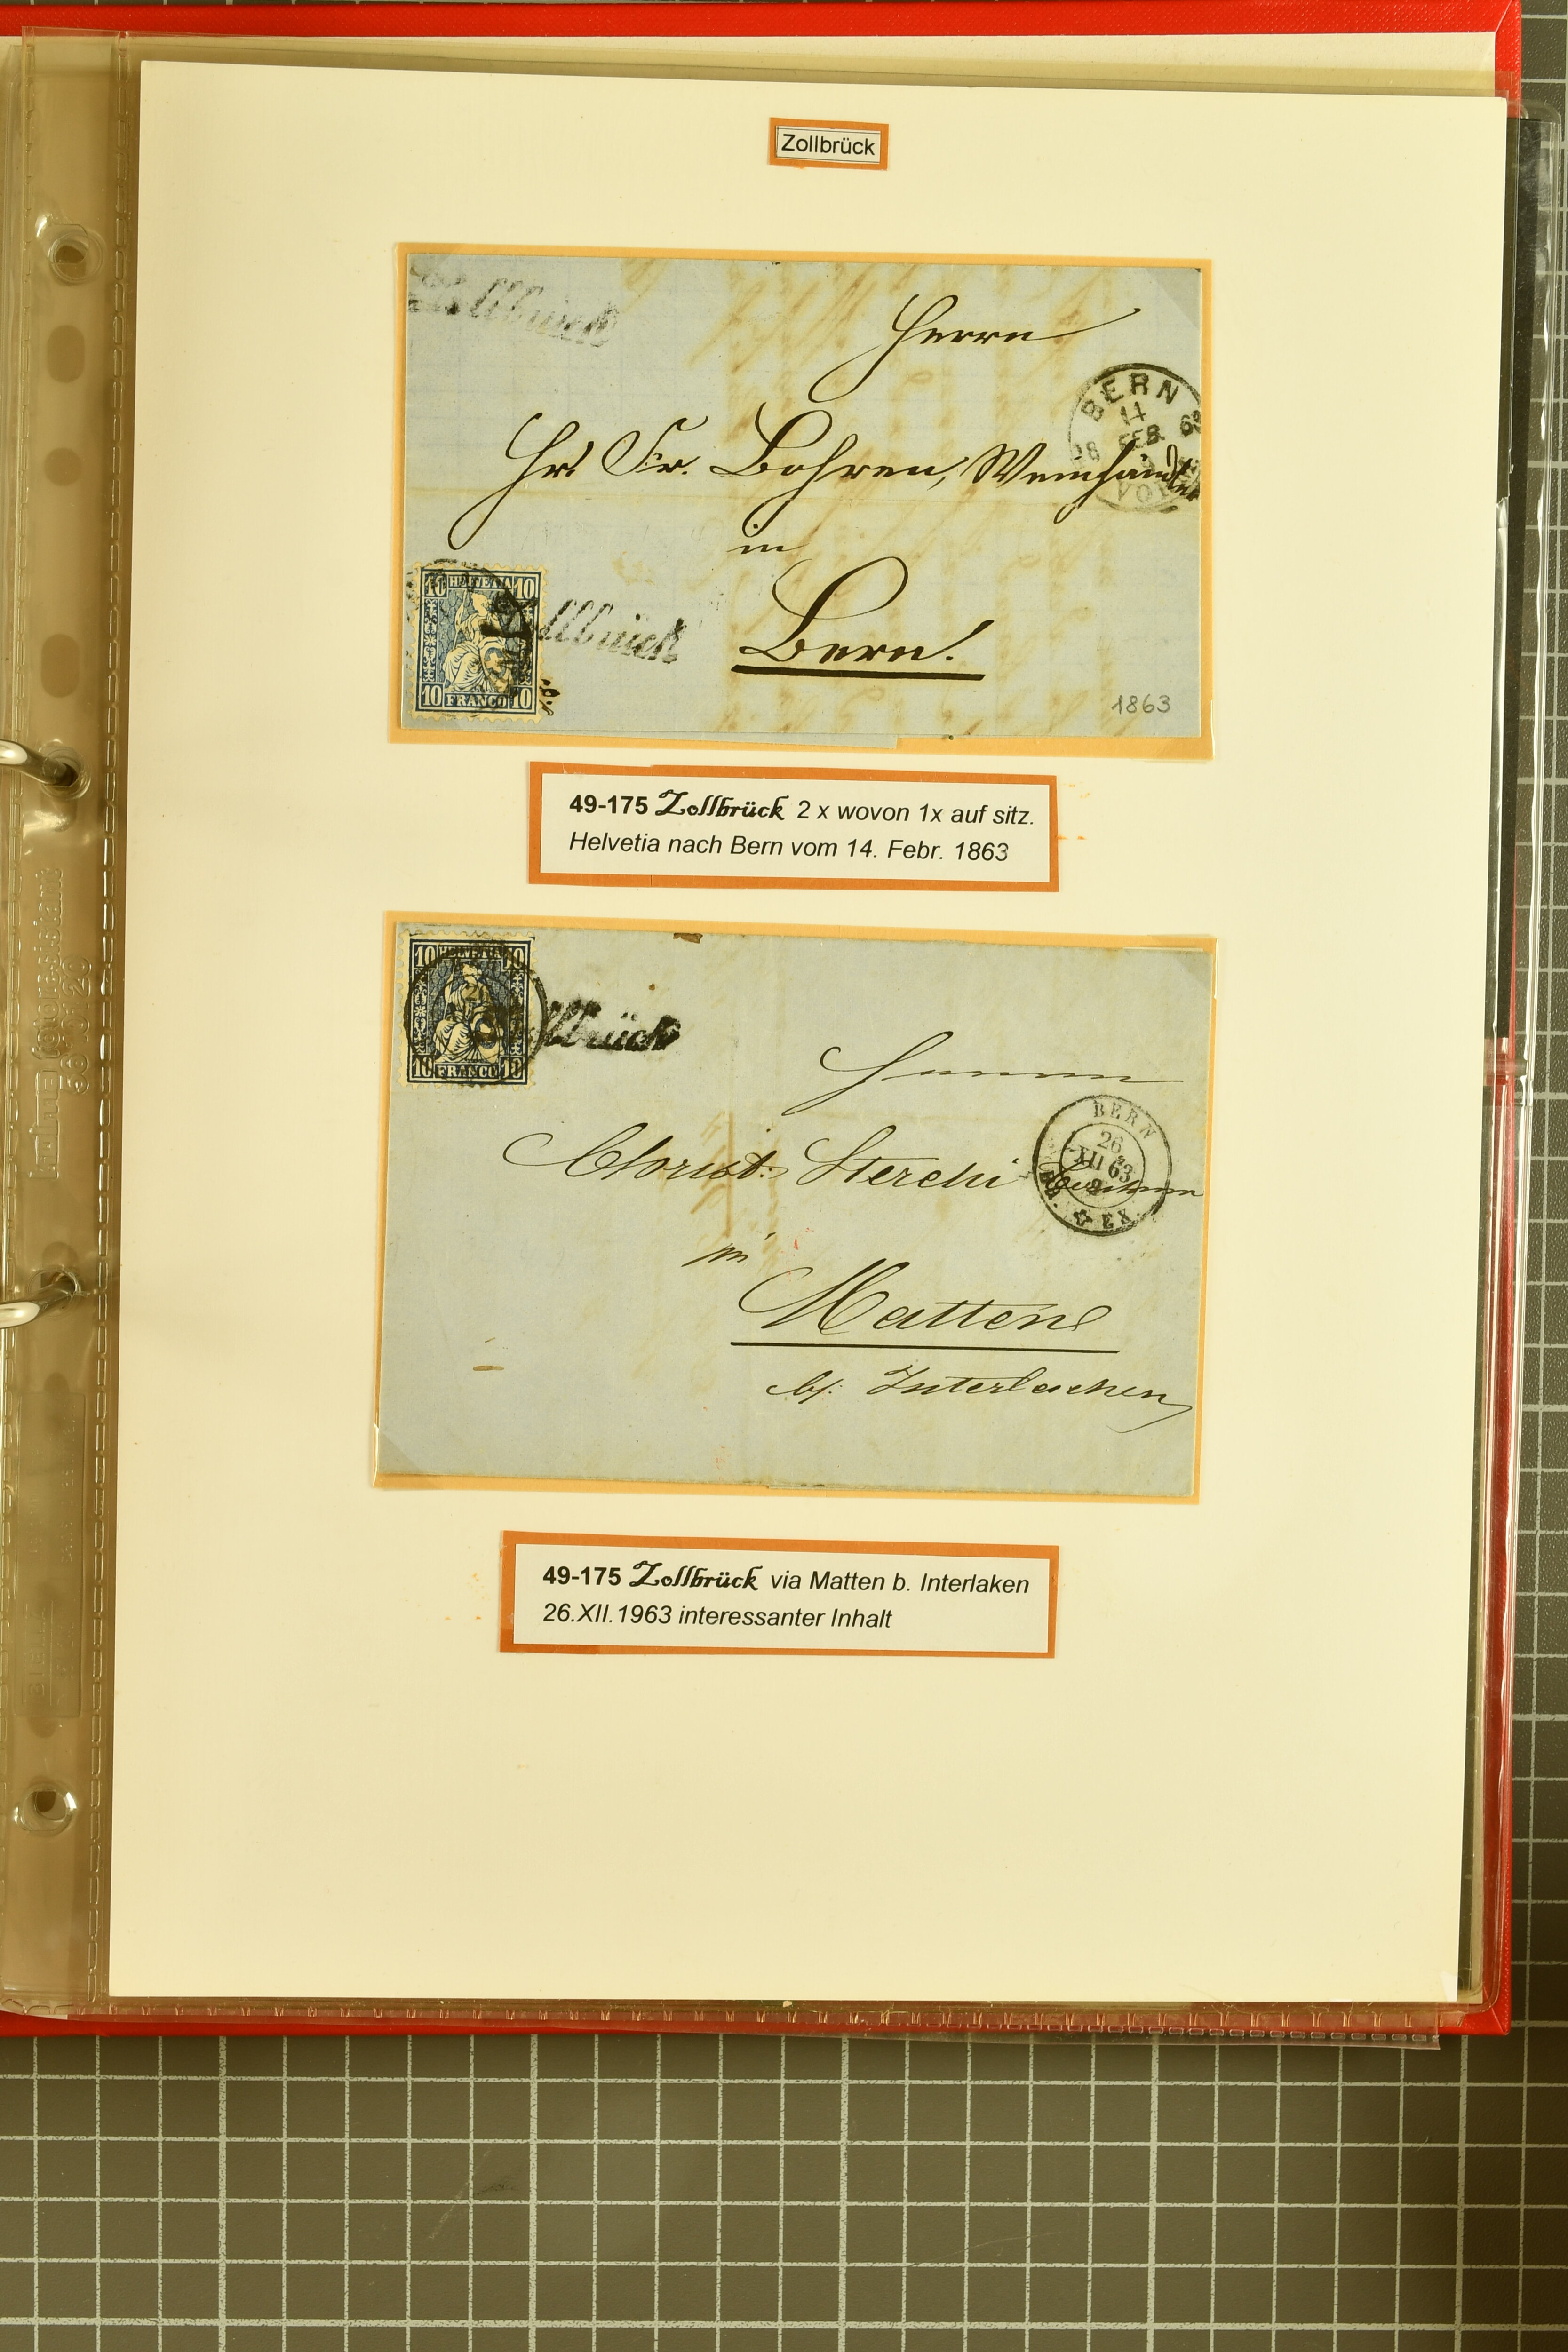 Zollbrück
Zollbrück
Herrn
BERN
14
FEB 63
Hr. Fr. Bohren, Weinhändler
in
10 HELVETIA 10
Zollbrück
Bern.
10 FRANCO 10
1863
49-175 Zollbrück 2 x wovon 1x auf sitz.
Helvetia nach Bern vom 14. Febr. 1863
10 HELVETIA 10
Zollbrück
10 FRANCO 10
Herrn
BERN
26
XII 63
EX.
Christ: Sterchi
in
Matten
b/: Interlachen
49-175 Zollbrück via Matten b. Interlaken
26.XII.1963 interessanter Inhalt